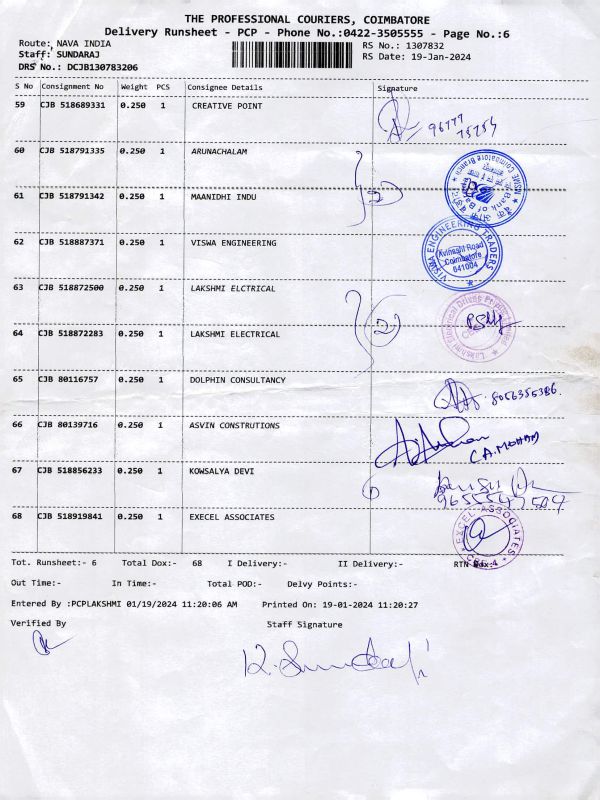 THE PROFESSIONAL COURIERS, COIMBATORE
Delivery Runsheet - PCP - Phone No.:0422-3505555 - Page No.:6
Route: NAVA INDIA
RS No.: 1307832
Staff: SUNDARAJ
RS Date: 19-Jan-2024
DRS No.: DCJB130783206
S No Consignment No Weight PCS Consignee Details Signature
59 CJB 518689331 0.250 1 CREATIVE POINT
96777
75754
60 CJB 518791335 0.250 1 ARUNACHALAM
61 CJB 518791342 0.250 1 MAANIDHI INDU
Bank of Baroda
MSME Coimbatore Branch
62 CJB 518887371 0.250 1 VISWA ENGINEERING
VISWA ENGINEERING TRADERS
Avinashi Road
Coimbatore
641004
63 CJB 518872500 0.250 1 LAKSHMI ELCTRICAL
64 CJB 518872283 0.250 1 LAKSHMI ELECTRICAL
2
Lakshmi Electrical Drives Private
65 CJB 80116757 0.250 1 DOLPHIN CONSULTANCY
8056355386
66 CJB 80139716 0.250 1 ASVIN CONSTRUTIONS
C.A.MOHAN
67 CJB 518856233 0.250 1 KOWSALYA DEVI
68 CJB 518919841 0.250 1 EXECEL ASSOCIATES
EXCEL ASSOCIATES
CBE-4
Tot. Runsheet:- 6 Total Dox:- 68 I Delivery:- II Delivery:- RTN Dox:-
Out Time:- In Time:- Total POD:- Delvy Points:-
Entered By :PCPLAKSHMI 01/19/2024 11:20:06 AM Printed On: 19-01-2024 11:20:27
Verified By Staff Signature
K. Sundaraj